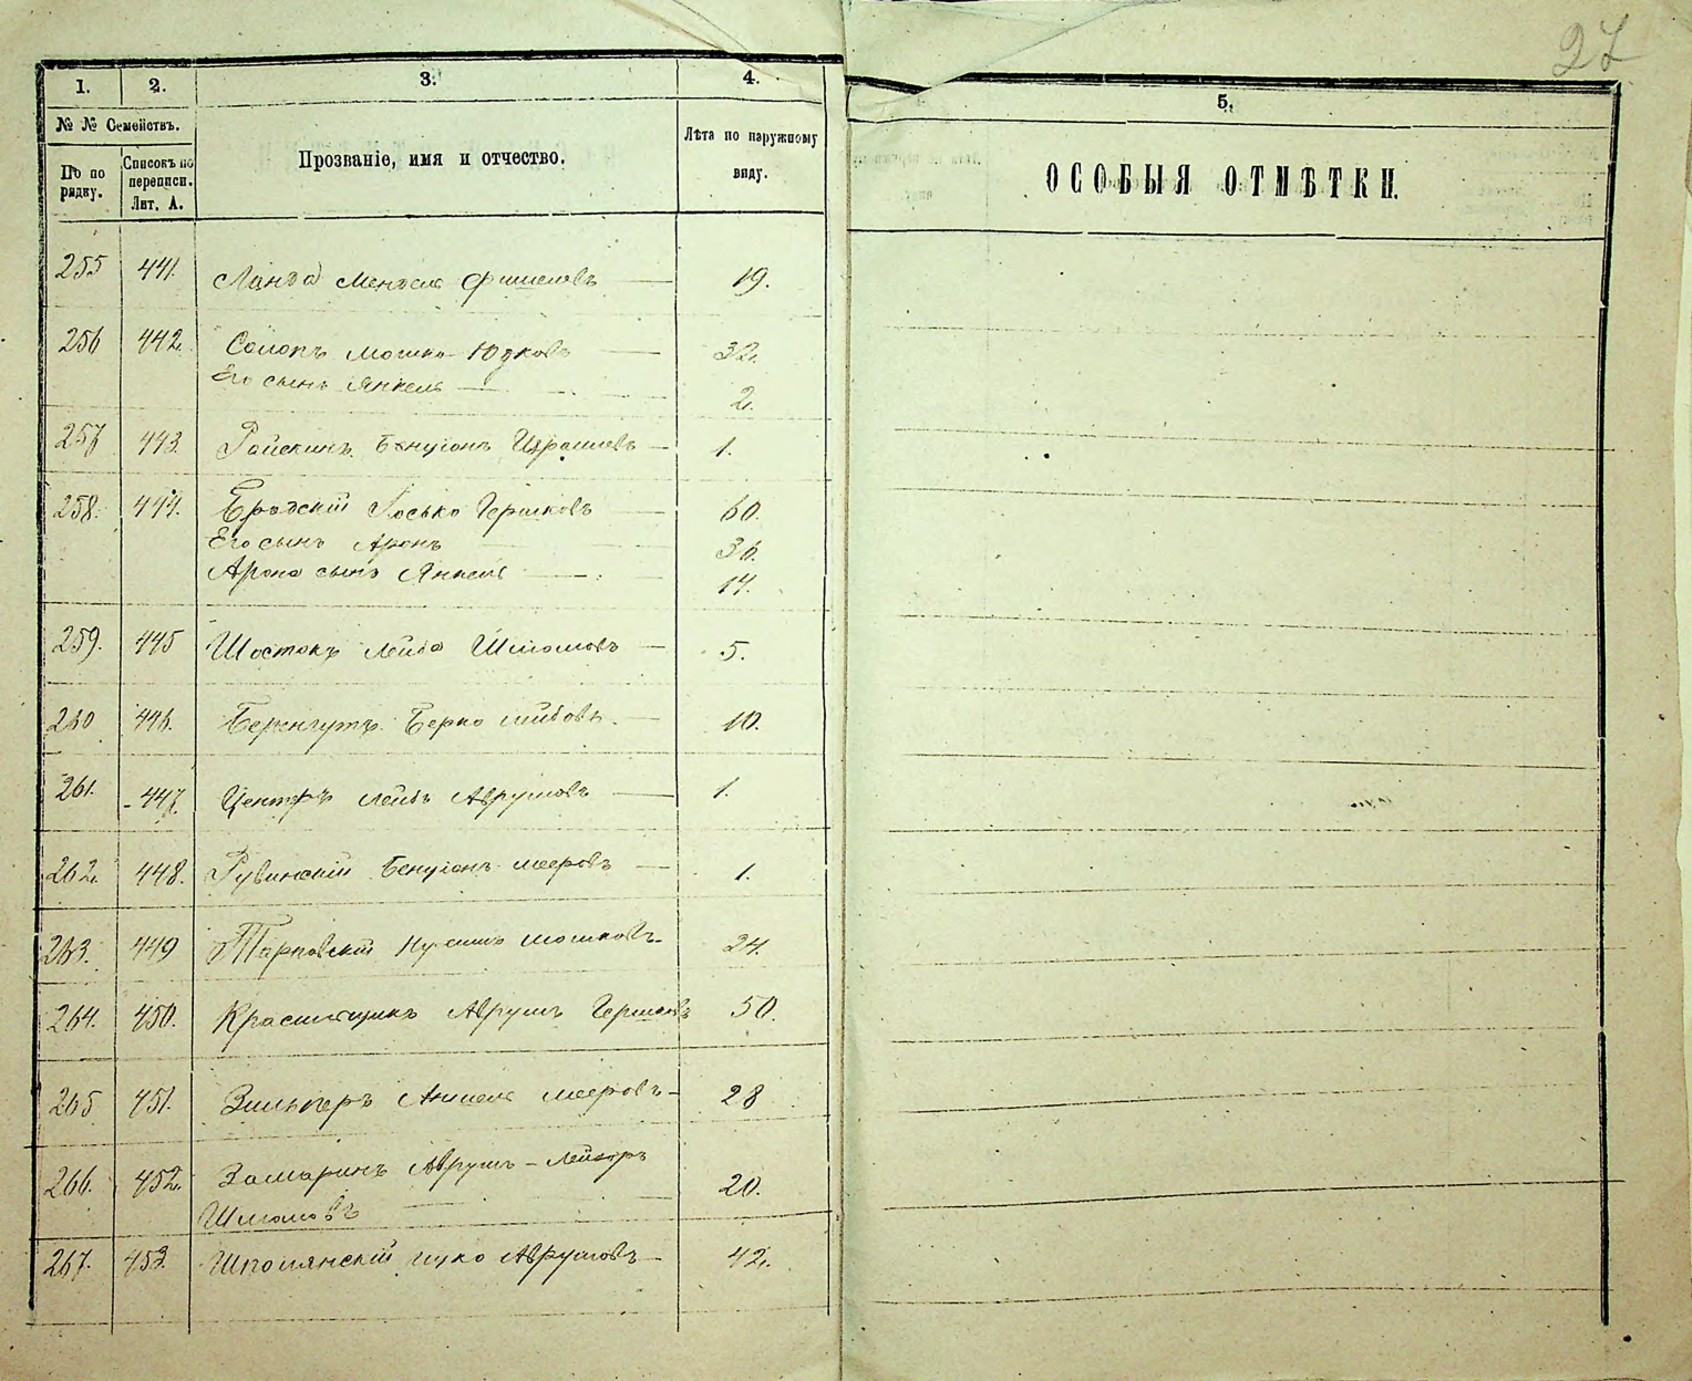 27
1. 2. 3. 4. 5.
№ № Семействъ.
По по рядку.
Списокъ по переписи. Лит. А.
Прозваніе, имя и отчество.
Лѣта по наружному виду.
ОСОБЫЯ ОТМѢТКИ.
255 441. Ланда Мендель Фишелевъ 19.
256 442. Мошко Юдковъ 32.
Его сынъ Янкель 2.
257 443. Райскинъ Бенціонъ 1.
258. 444. Бродскій Іосько Гершковъ 60.
Его сынъ Аронъ 36.
Арона сынъ Янкель 14.
259. 445 Шостокъ Лейба Шлiомовъ 5.
260 446. Беренгутъ Берко Лейбовъ. 10.
261. 447. Лейбъ Аврумовъ 1.
262. 448. Рувинскій Бенціонъ Мееровъ 1.
263. 449 Тарновскій Мошковъ 24.
264. 450. Красильщикъ Аврумъ Гершковъ 50.
265 451. Зильперъ Аншель Мееровъ 28
266. 452. Замаринъ Аврумъ-Лейзоръ 20.
Шлiомовъ
267. 453. Шполянскій Ицко Аврумовъ 42.